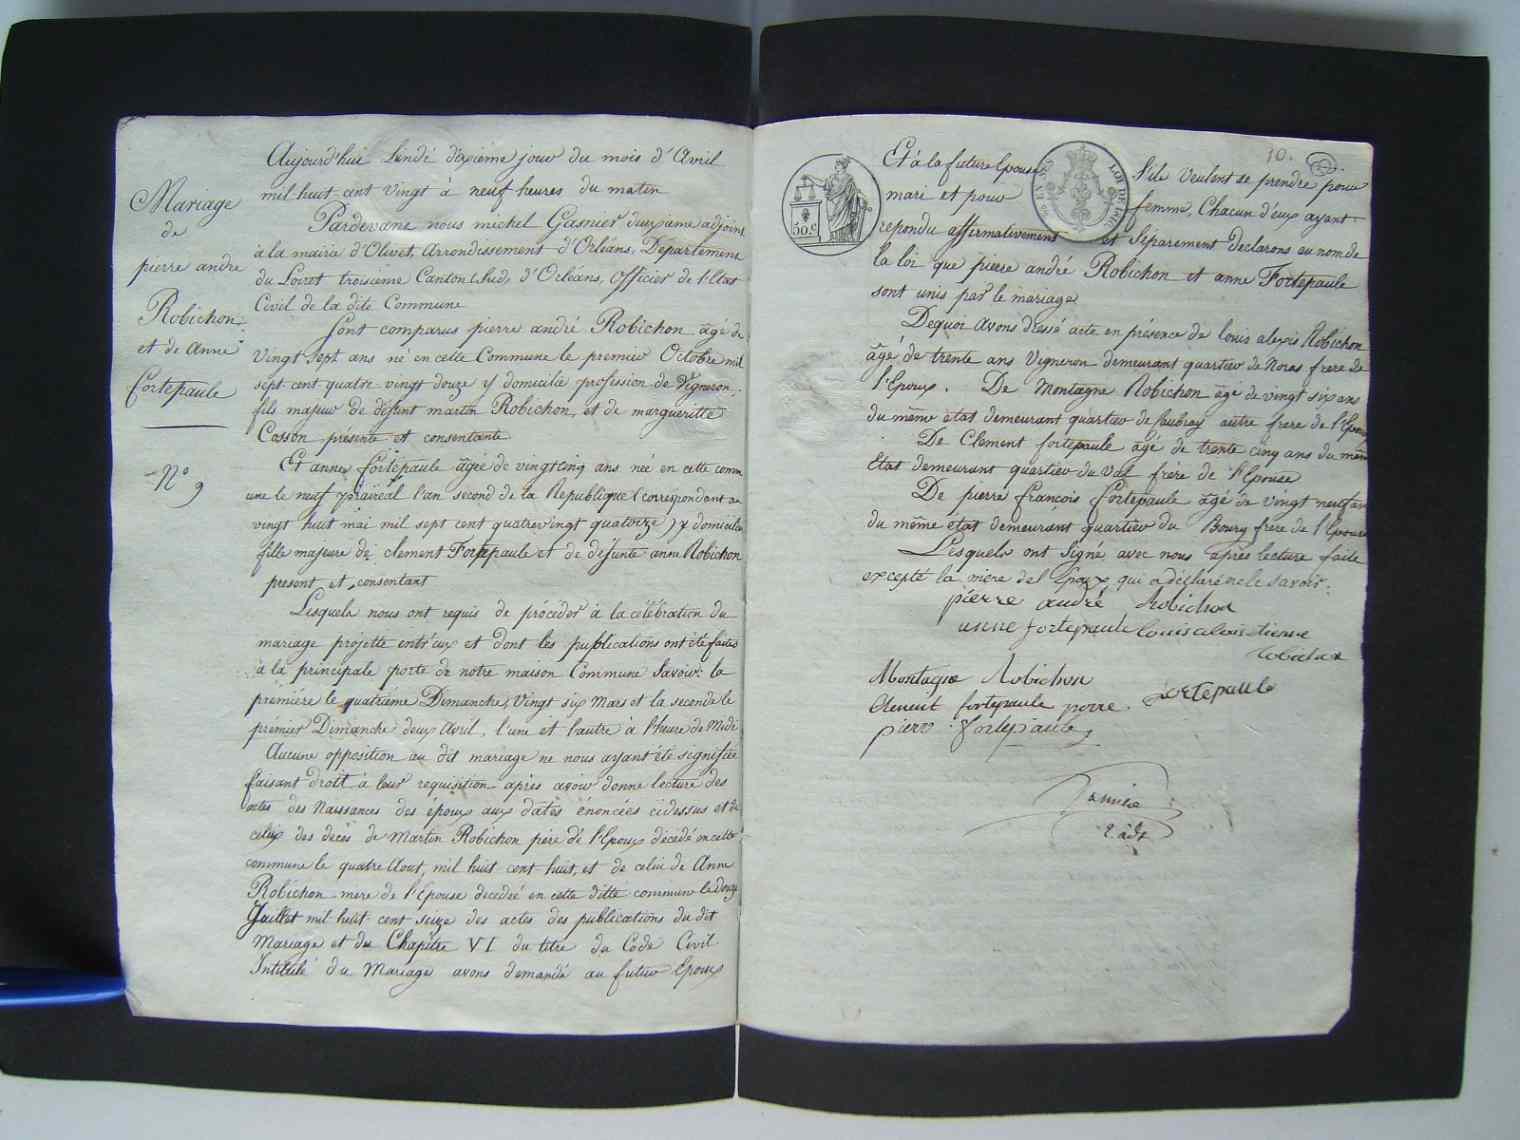 Mariage
de
pierre andre
Robichon
et de Anne
Fortepaule
N° 9
Aujourd'hui Lundi dixieme jour du mois d'Avril
mil huit cent vingt à neuf heures du matin
Pardevant nous michel Gasnier deuxieme adjoint
à la mairie d'Olivet, Arrondissement d'Orléans, Département
du Loiret troisieme Canton (Sud) d'Orléans, officier de l'Etat
Civil de la dite Commune
Sont comparus pierre andré Robichon agé de
Vingt sept ans né en cette Commune le premier Octobre mil
sept cent quatre vingt douze y domicilié profession de Vigneron,
fils majeur de défunt martin Robichon, et de margueritte
Cosson présente et consentante
Et anne fortepaule agée de vingt cinq ans née en cette comm
une le neuf prairéal l'an second de la Republique (correspondant au
vingt huit mai mil sept cent quatrevingt quatorze) y domiciliée
fille majeure de clement Fortepaule et de défunte anne Robichon
present et consentant
Lesquels nous ont requis de procéder à la célébration du
mariage projetté entr'eux et dont les publications ont été faites
à la principale porte de notre maison Commune Savoir: la
première le quatrième Dimanche Vingt six Mars et la seconde le
premier Dimanche deux Avril, l'une et l'autre à l'heure de Midi
Aucune opposition au dit mariage ne nous ayant été signifiée
faisant droit à leur requisition après avoir donné lecture des
actes des Naissances des époux aux dates énoncées cidessus et de
celui des décès de Martin Robichon père de l'Epoux décédé en cette
commune le quatre Aout, mil huit cent huit, et de celui de Anne
Robichon mere de l'Epouse decedée en cette ditte commune le douze
Juillet mil huit cent seize des actes des publications du dit
Mariage et du Chapitre VI du titre du Code Civil
Intitulé du Mariage avons demandé au futur Epoux
10.
50.c
LOI DE 1816
Et à la future Epouse S'ils veulent se prendre pour
mari et pour femme, Chacun d'eux ayant
repondu affirmativement et Séparement declarons au nom de
la loi que pierre andré Robichon et anne Fortepaule
sont unis par le mariage
Dequoi avons dressé acte en présence de louis alexis Robichon
agé de trente ans Vigneron demeurant quartier de Noras frere de
l'Epoux. De Montagne Robichon agé de vingt six ans
du même etat demeurant quartier de Caubray autre frere de l'Epoux
De Clement fortepaule agé de trente cinq ans du même
Etat demeurant quartier du Val frère de l'Epouse
De pierre françois fortepaule agé de vingt neuf ans
du même etat demeurant quartier du Bourg frere de l'Epouse
Lesquels ont Signé avec nous après lecture faite
excepté la mere de l'Epoux qui a déclaré ne le savoir.
pierre andré Robichon
anne fortepaule louis alexis etienne
Robichon
Montagne Robichon
Clement fortepaule perre. fortepaule
pierr. fortepaule